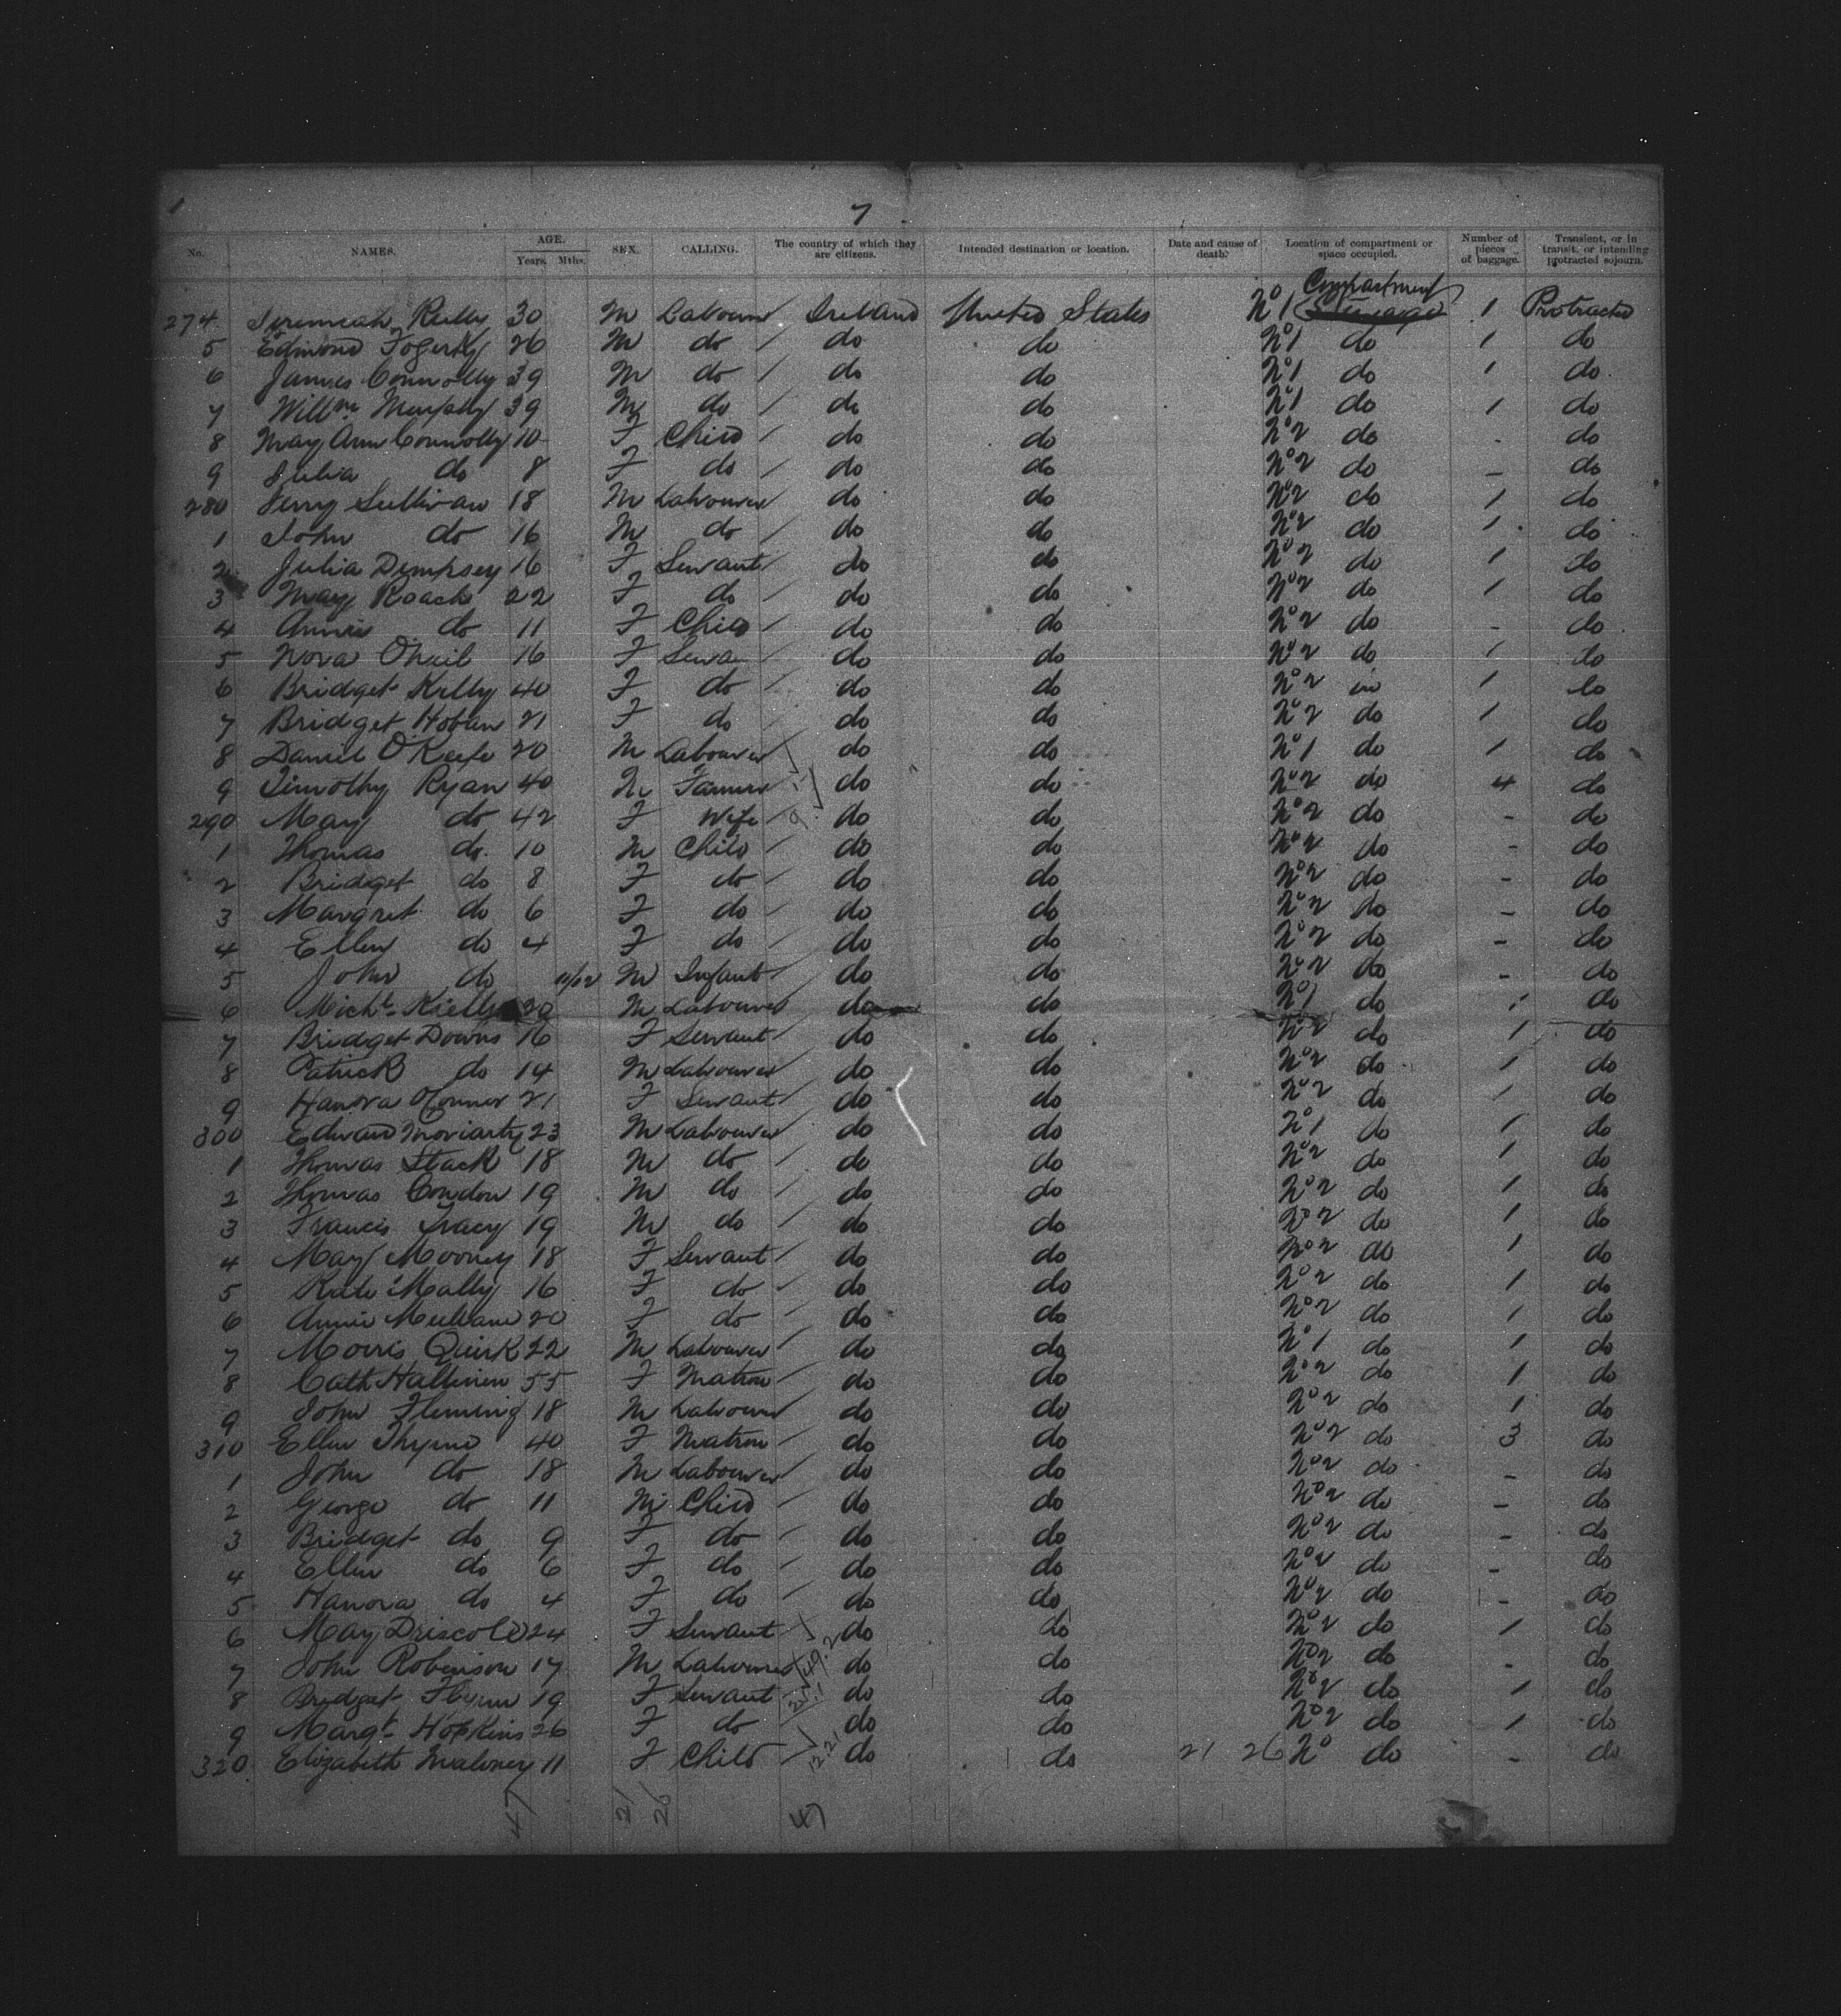 1
7
No. NAMES. AGE. Years. Mths. SEX. CALLING. The country of which they are citizens. Intended destination or location. Date and cause of death. Location of compartment or space occupied. Number of pieces of baggage. Transient, or in transit, or intending protracted sojourn.
Compartment
274 Jeremiah Reilly 30 M Labourer Ireland United States No 1 Steerage 1 Protracted
5 Edmond Fogerty 26 M do do do No 1 do 1 do
6 James Connolly 39 M do do do No 1 do 1 do
7 Willm Murphy 39 M do do do No 1 do 1 do
8 May Ann Connolly 10 F Child do do No 2 do - do
9 Julia do 8 F do do do No 2 do - do
280 Jerry Sullivan 18 M Labourer do do No 2 do 1 do
1 John do 16 M do do do No 2 do 1 do
2 Julia Dempsey 16 F Servant do do No 2 do 1 do
3 May Roach 22 F do do do No 2 do 1 do
4 Annie do 11 F Child do do No 2 do - do
5 Nora O'Neil 16 F Serva do do No 2 do 1 do
6 Bridget Kelly 40 F do do do No 2 do 1 do
7 Bridget Hoban 21 F do do do No 2 do 1 do
8 Daniel O'Keefe 20 M Labourer do do No 1 do 1 do
9 Timothy Ryan 40 M Farmer do do No 2 do 4 do
290 May do 42 F Wife do do No 2 do - do
1 Thomas do 10 M Child do do No 2 do - do
2 Bridget do 8 F do do do No 2 do - do
3 Margret do 6 F do do do No 2 do - do
4 Ellen do 4 F do do do No 2 do - do
5 John do M Infant do do No 2 do - do
6 Michl Kielly 20 M Labourer do do No 1 do 1 do
7 Bridget Downs 16 F Servant do do No 2 do 1 do
8 Patrick do 14 M Labourer do do No 2 do 1 do
9 Hanora O'Connor 21 F Servant do do No 2 do 1 do
300 Edward Moriarty 23 M Labourer do do No 1 do 1 do
1 Thomas Stack 18 M do do do No 2 do 1 do
2 Thomas Condon 19 M do do do No 2 do 1 do
3 Francis Tracy 19 M do do do No 2 do 1 do
4 May Mooney 18 F Servant do do No 2 do 1 do
5 Kate Mally 16 F do do do No 2 do 1 do
6 Annie 20 F do do do No 2 do 1 do
7 Morris Quirk 22 M Labourer do do No 1 do 1 do
8 Cath Hallinen 55 F Matron do do No 2 do 1 do
9 John Fleming 18 M Labourer do do No 2 do 1 do
310 Ellen Thyme 40 F Matron do do No 2 do 3 do
1 John do 18 M Labourer do do No 2 do - do
2 George do 11 M Child do do No 2 do - do
3 Bridget do 9 F do do do No 2 do - do
4 Ellen do 6 F do do do No 2 do - do
5 Hanora do 4 F do do do No 2 do - do
6 May Driscoll 24 F Servant do do No 2 do 1 do
7 John Robinson 17 M Labourer do do No 2 do - do
8 Bridget Flynn 19 F Servant do do No 2 do 1 do
9 Margt Hopkins 26 F do do do No 2 do 1 do
320 Elizabeth Maloney 11 F Child do do 21 26 No do - do
47 21 26 47